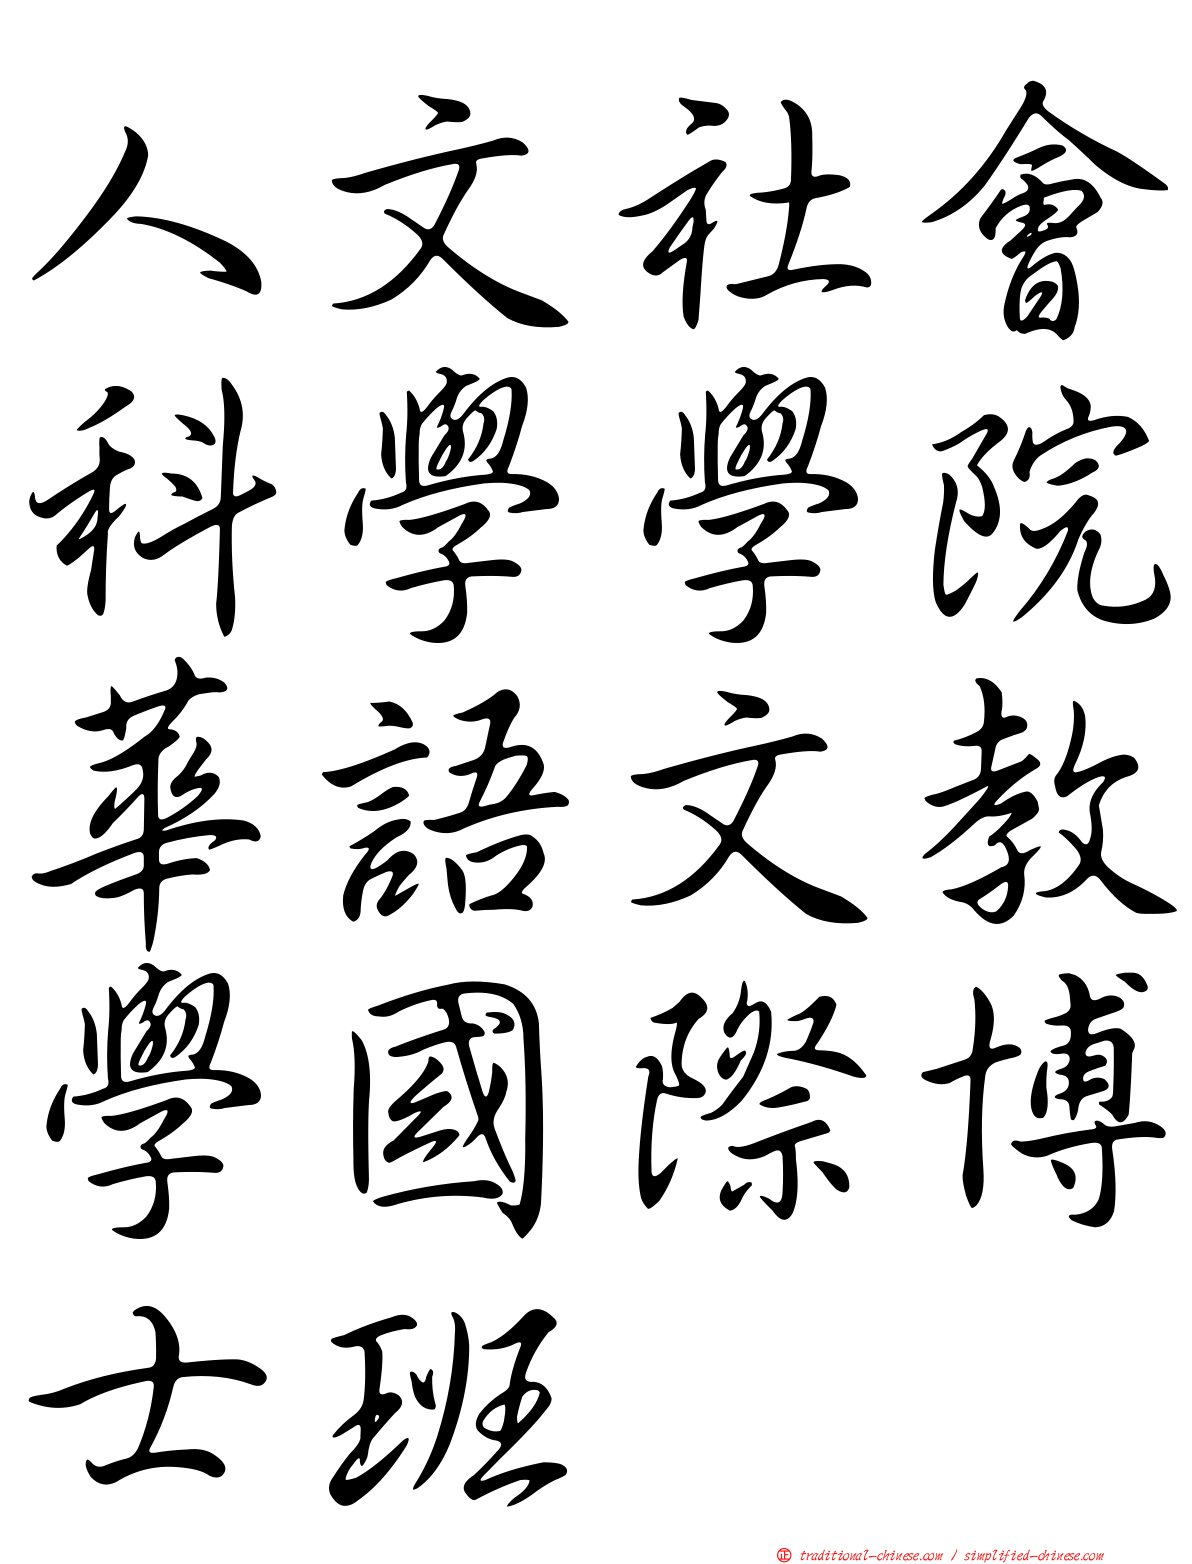 人文社會
科學學院
華語文教
學國際博
士班
正 traditional-chinese.com / simplified-chinese.com